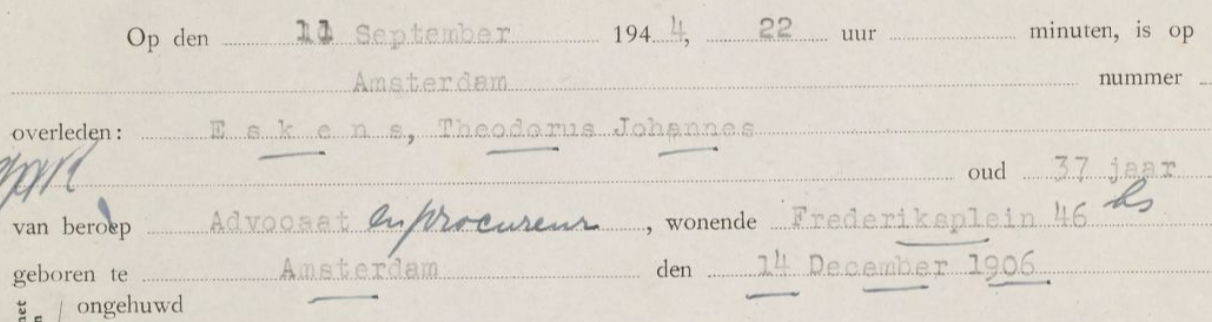 Op den 11 September 1944, 22 uur minuten, is op
Amsterdam nummer
overleden: Eskens, Theodorus Johannes
oud 37 jaar
van beroep Advocaat en procureur, wonende Frederiksplein 46 hs
geboren te Amsterdam den 14 December 1906
ongehuwd